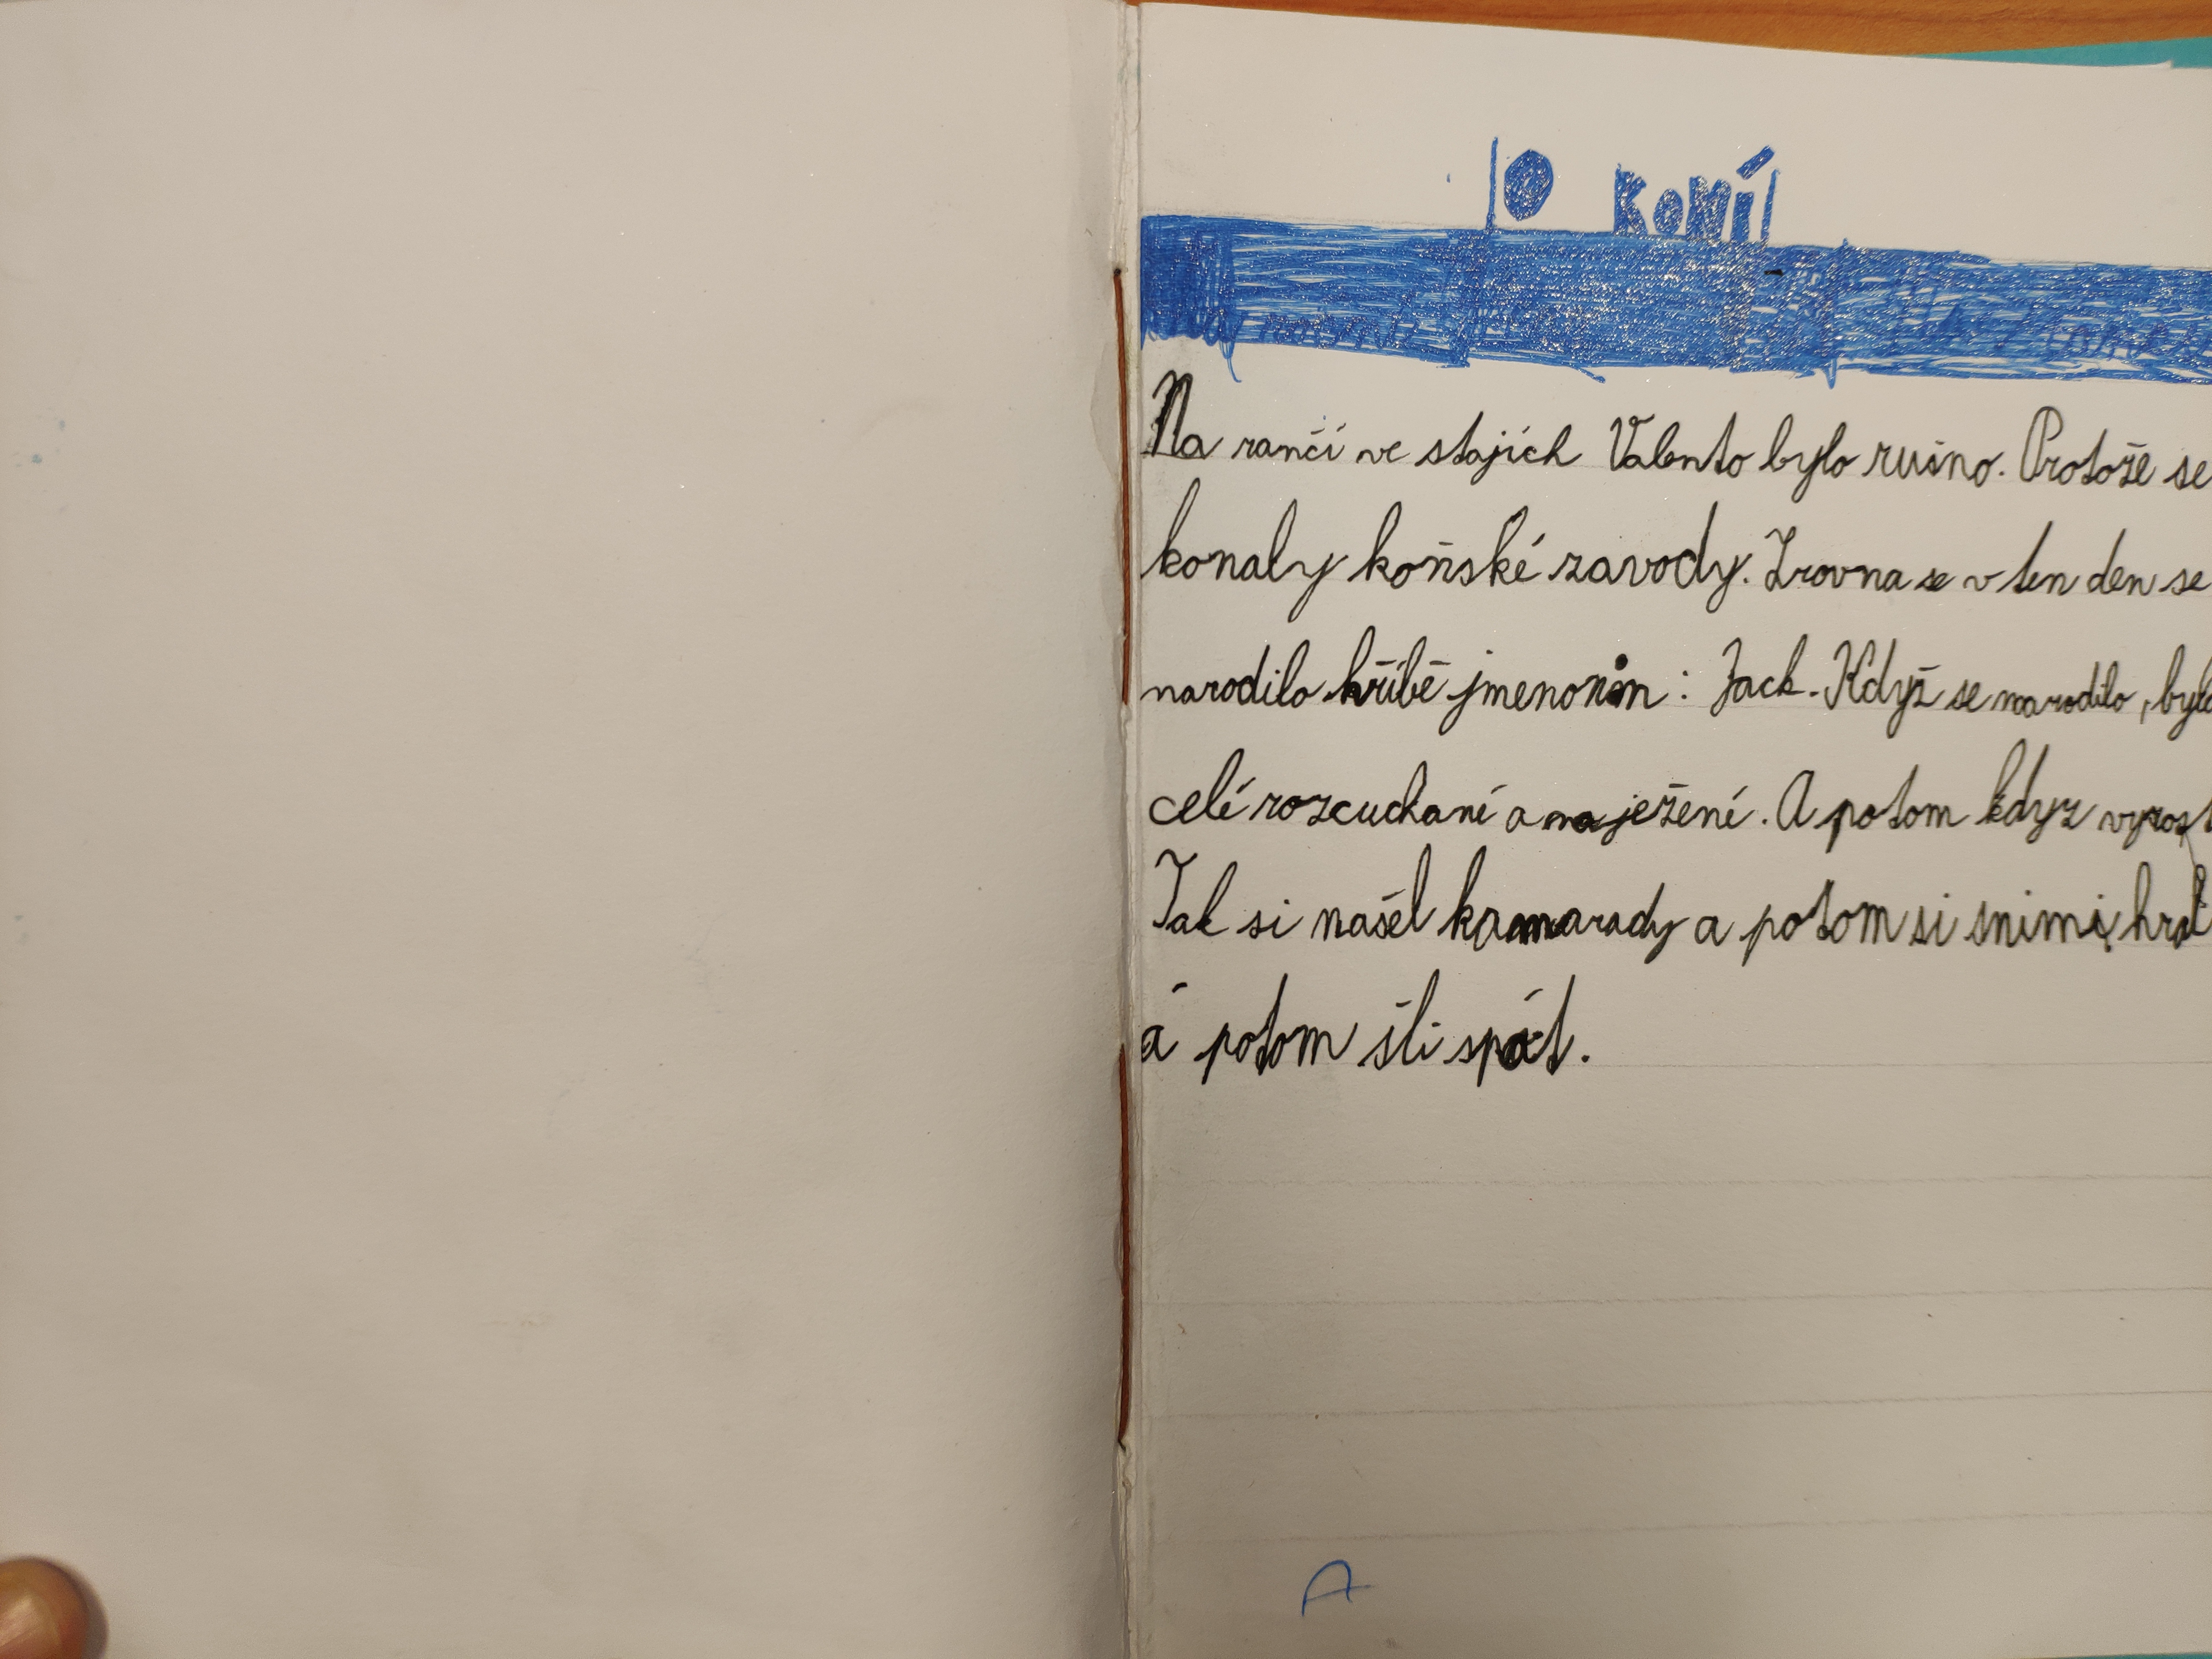 O KONÍ
Na ranči ve stajích Valento bylo rušno. Protože se
konaly koňské zavody. Zrovna se v ten den se
narodilo hříbě jmenonim : Jack. Když se narodilo, bylo
celé rozcuchané a naježené. A potom kdyz vyrost
Tak si našel kamarady a potom si snimi hrál
á potom šli spát.
A